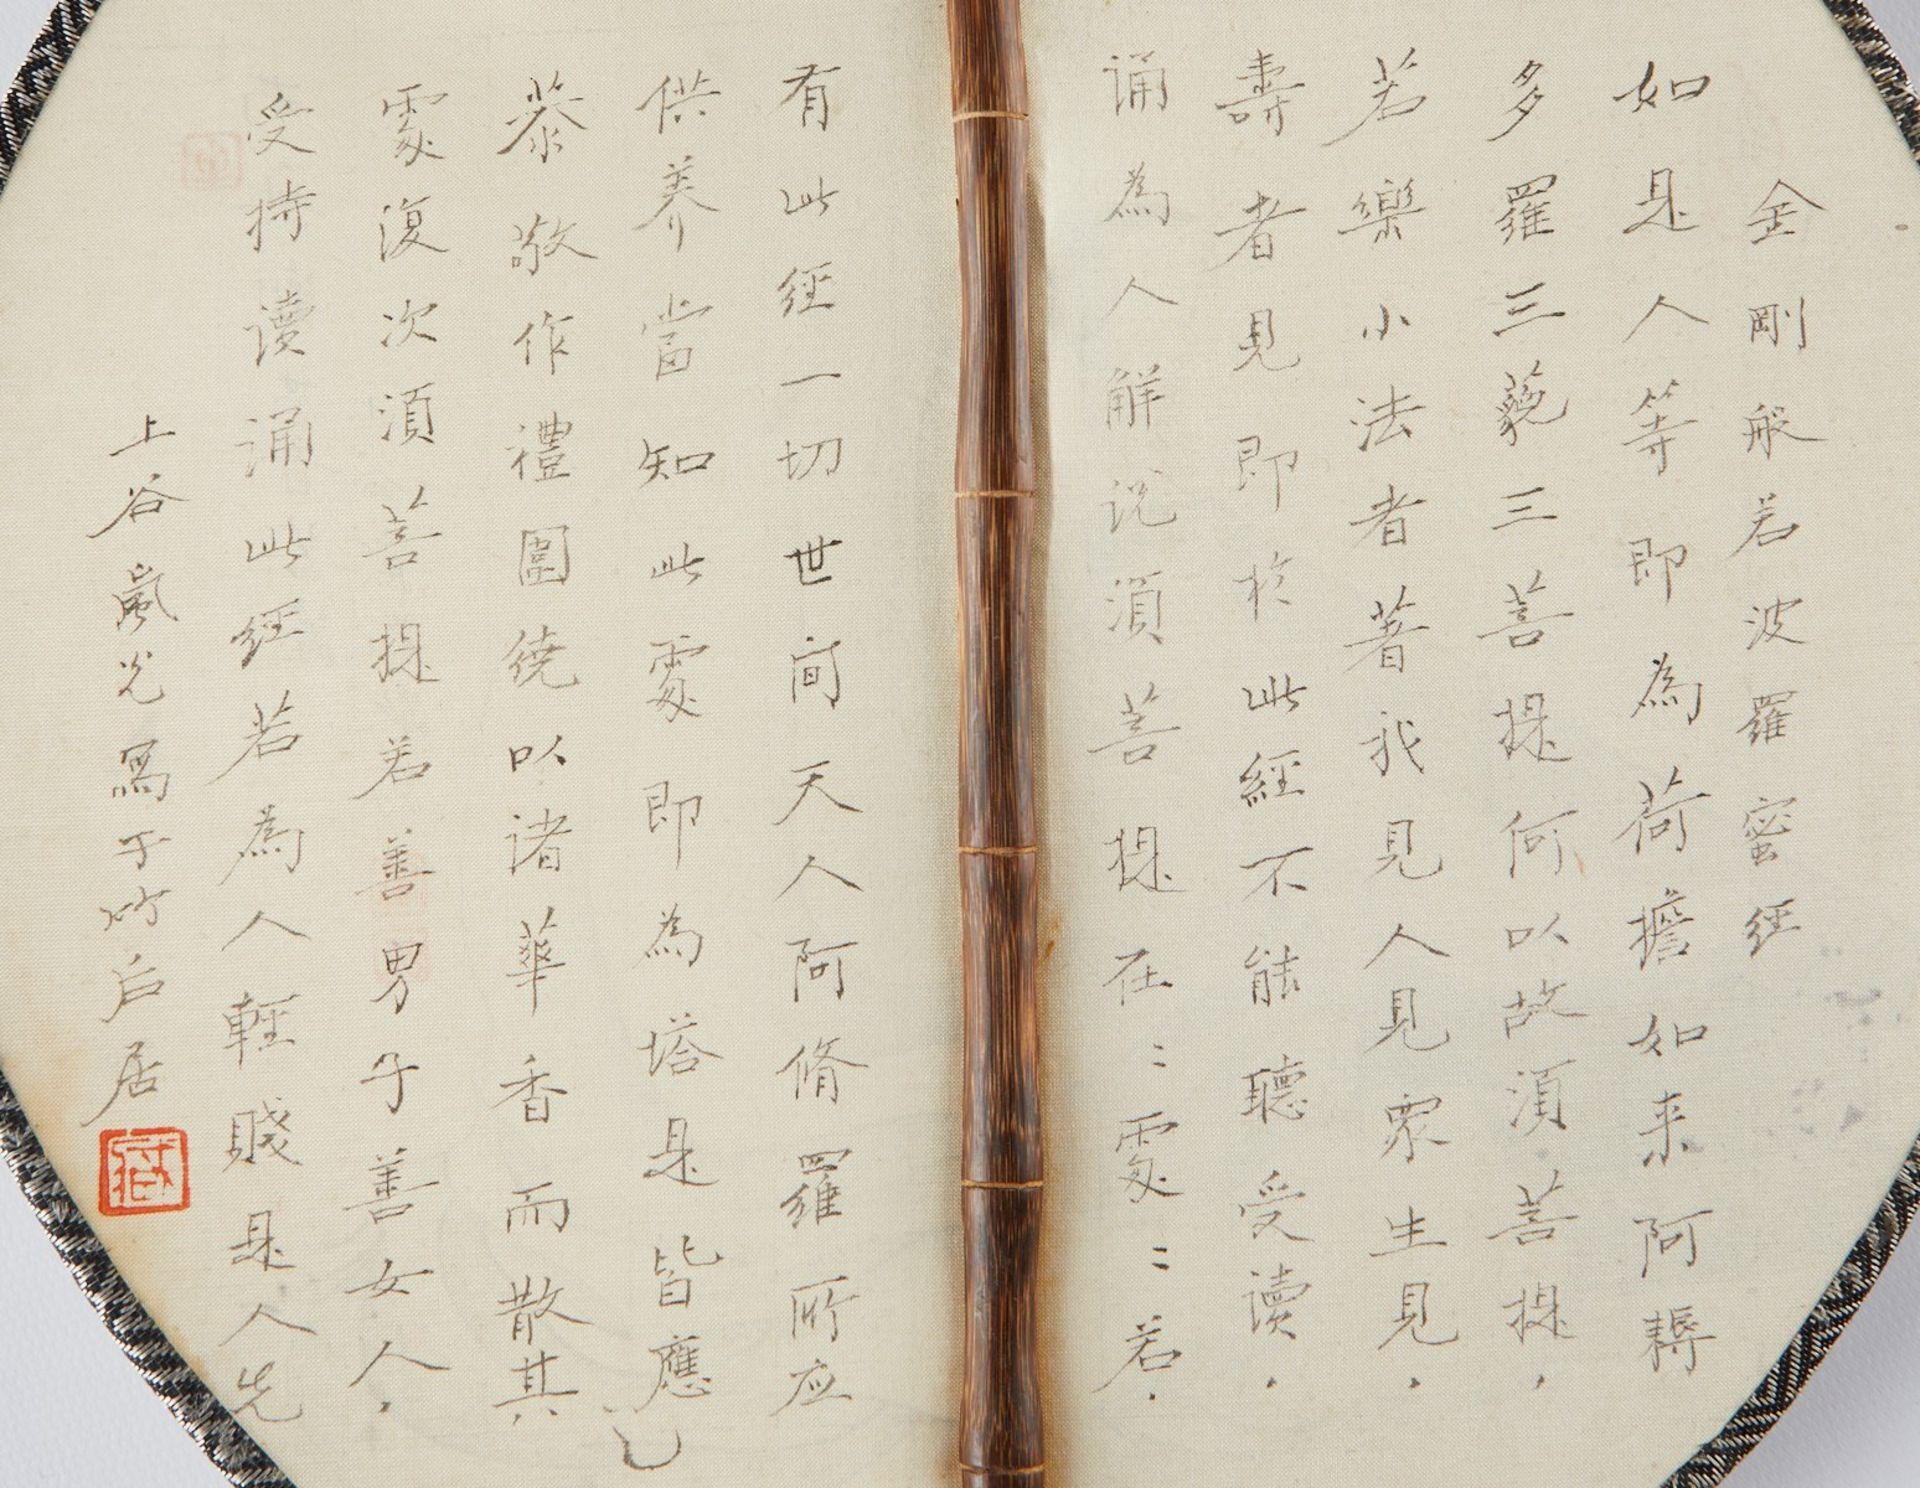 金剛般若波羅蜜經
如是人等即為荷擔如来阿耨
多羅三藐三菩提何以故須菩提
若樂小法者著我見人見眾生見
壽者見即於此經不能聽受讀
誦為人解说須菩提在〻處〻若
有此經一切世间天人阿脩羅所应
供养當知此處即為塔是皆應
恭敬作禮圍繞以诸華香而散其
處復次須菩提若善男子善女人
受持读诵此經若為人輕賤是人先
上谷嵐光寫于竹戶居